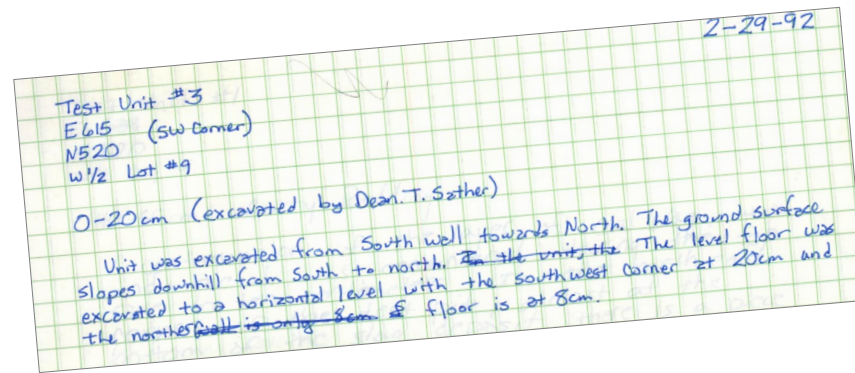 2-29-92
Test Unit #3
E615 (SW Corner)
N520
W 1/2 Lot #9
0-20cm (excavated by Dean. T. Sather)
Unit was excavated from South wall towards North. The ground surface
slopes downhill from South to north. In the unit, the The level floor was
excavated to a horizontal level with the southwest corner at 20cm and
the northern wall is only 8cm floor is at 8cm.